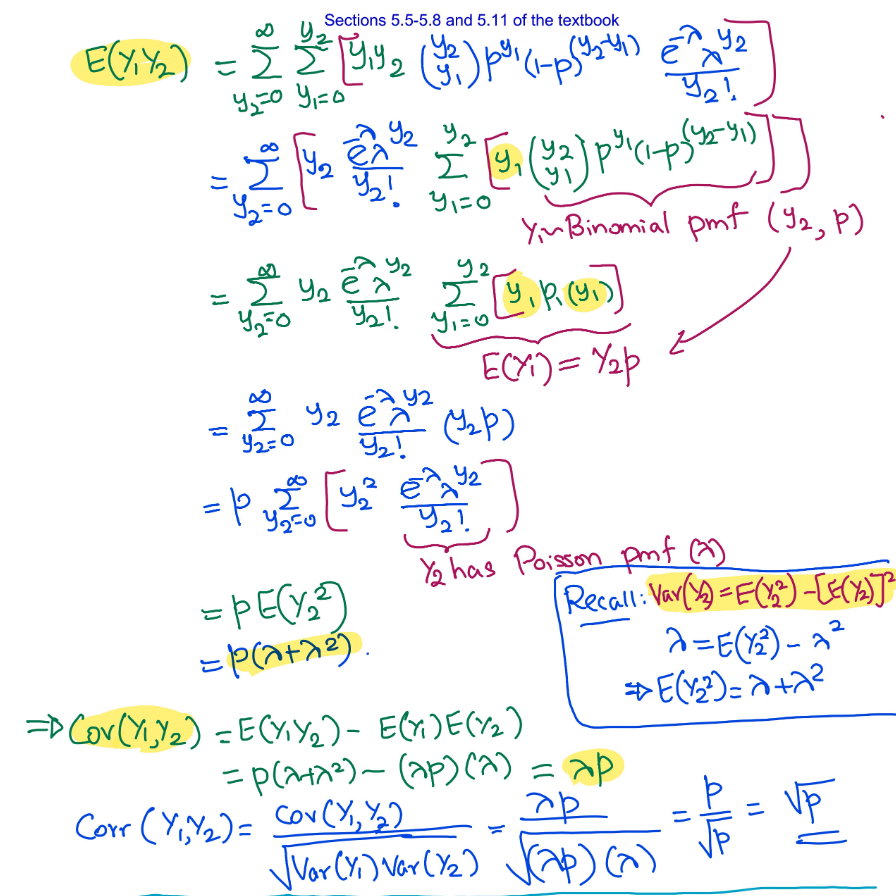 Sections 5.5-5.8 and 5.11 of the textbook
E(Y₁Y₂) = ∑_{y₂=0}^{∞} ∑_{y₁=0}^{y₂} [y₁y₂ (y₂ y₁) p^{y₁} (1-p)^{(y₂-y₁)} e^{-λ} λ^{y₂} / y₂!]
= ∑_{y₂=0}^{∞} [y₂ e^{-λ} λ^{y₂} / y₂! ∑_{y₁=0}^{y₂} [y₁ (y₂ y₁) p^{y₁} (1-p)^{(y₂-y₁)}]]
Y₁~Binomial pmf (y₂, p)
= ∑_{y₂=0}^{∞} y₂ e^{-λ} λ^{y₂} / y₂! ∑_{y₁=0}^{y₂} [y₁ p₁(y₁)]
E(Y₁) = Y₂p
= ∑_{y₂=0}^{∞} y₂ e^{-λ} λ^{y₂} / y₂! (y₂p)
= p ∑_{y₂=0}^{∞} [y₂² e^{-λ} λ^{y₂} / y₂!]
Y₂ has Poisson pmf (λ)
= p E(Y₂²)
= p(λ+λ²).
Recall: Var(Y₂) = E(Y₂²) - [E(Y₂)]²
λ = E(Y₂²) - λ²
⇒ E(Y₂²) = λ+λ²
⇒ Cov(Y₁,Y₂) = E(Y₁Y₂) - E(Y₁)E(Y₂)
= p(λ+λ²) - (λp)(λ) = λp
Corr(Y₁,Y₂) = Cov(Y₁,Y₂) / √(Var(Y₁) Var(Y₂)) = λp / √((λp)(λ)) = p / √p = √p